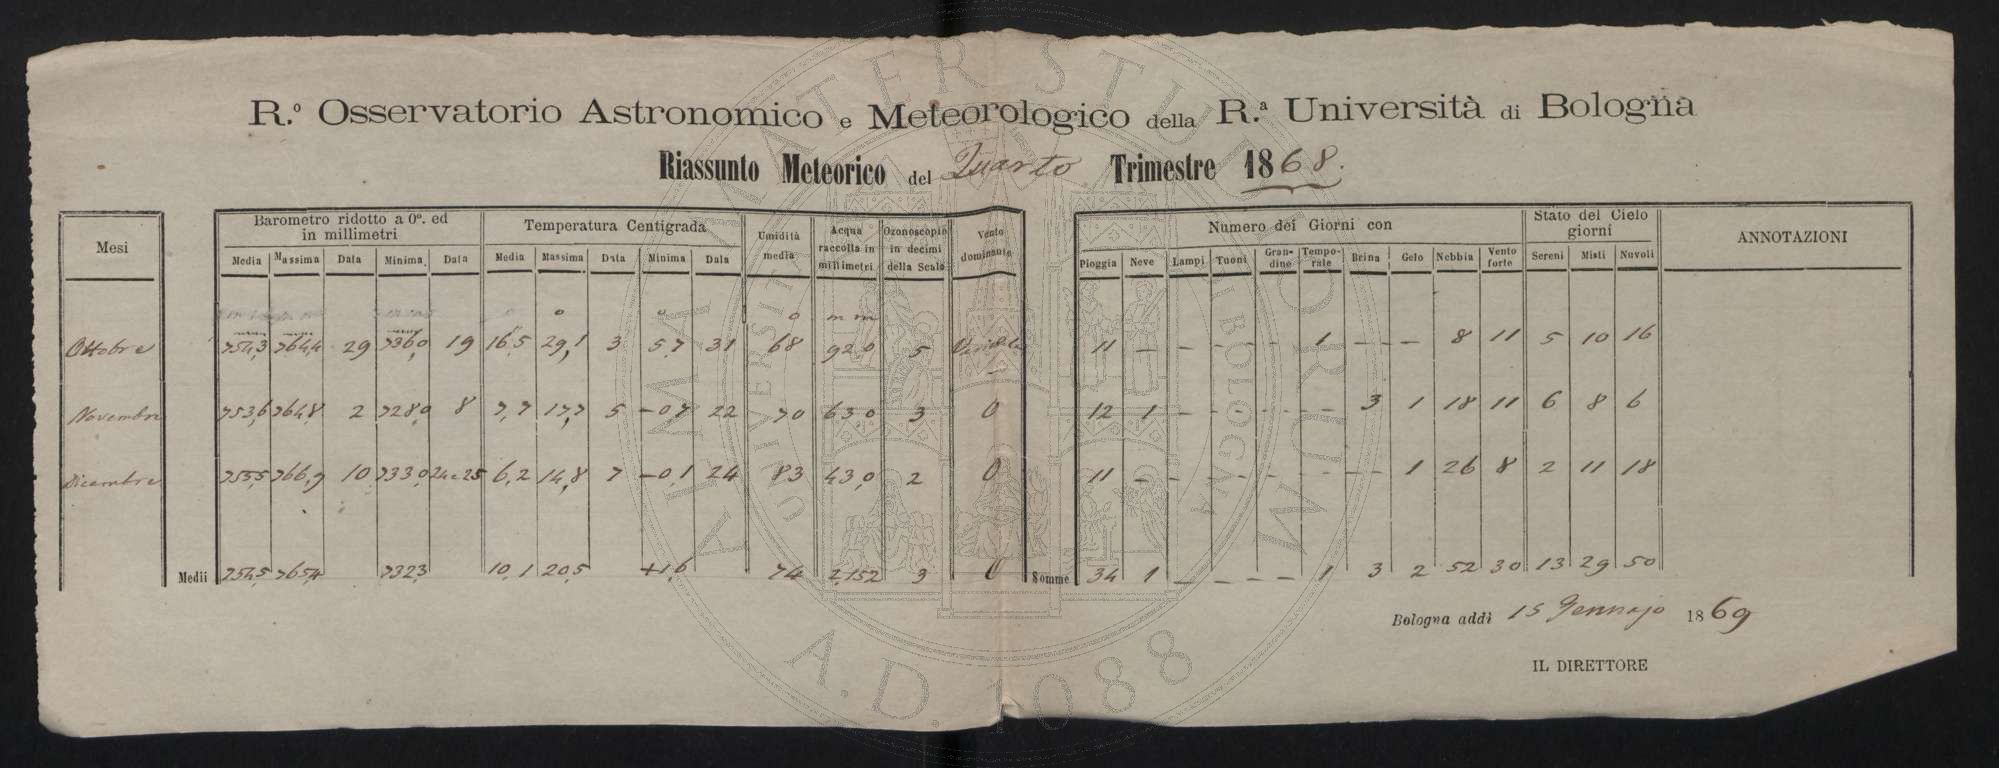 R.º Osservatorio Astronomico e Meteorologico della R.ª Università di Bologna
Riassunto Meteorico del Quarto Trimestre 1868.
Mesi Barometro ridotto a 0º. ed in millimetri Temperatura Centigrada Umidità media Acqua raccolta in millimetri Ozonoscopio in decimi della Scala Vento dominante Numero dei Giorni con Stato del Cielo giorni ANNOTAZIONI
Media Massima Data Minima Data Media Massima Data Minima Data Pioggia Neve Lampi Tuoni Grandine Temporale Brina Gelo Nebbia Vento forte Sereni Misti Nuvoli
º º º mm
Ottobre 754,3 764,4 29 736,0 19 16,5 29,1 3 5,7 31 68 92,0 5 11 — — — — 1 — — 8 11 5 10 16
Novembre 753,6 764,8 2 728,0 8 7,7 17,7 5 —0,7 22 70 63,0 3 O 12 1 — — — — 3 1 18 11 6 8 6
Dicembre 755,5 766,9 10 733,0 24e25 6,2 14,8 7 —0,1 24 83 43,0 2 O 11 — — — — — — 1 26 8 2 11 18
Medii 754,5 765,4 732,3 10,1 20,5 +1,6 74 2,152 3 O Somme 34 1 — — — 1 3 2 52 30 13 29 50
Bologna addì 15 Gennajo 1869
IL DIRETTORE
ALMA MATER STUDIORUM
UNIVERSITÀ DI BOLOGNA
A.D. 1088